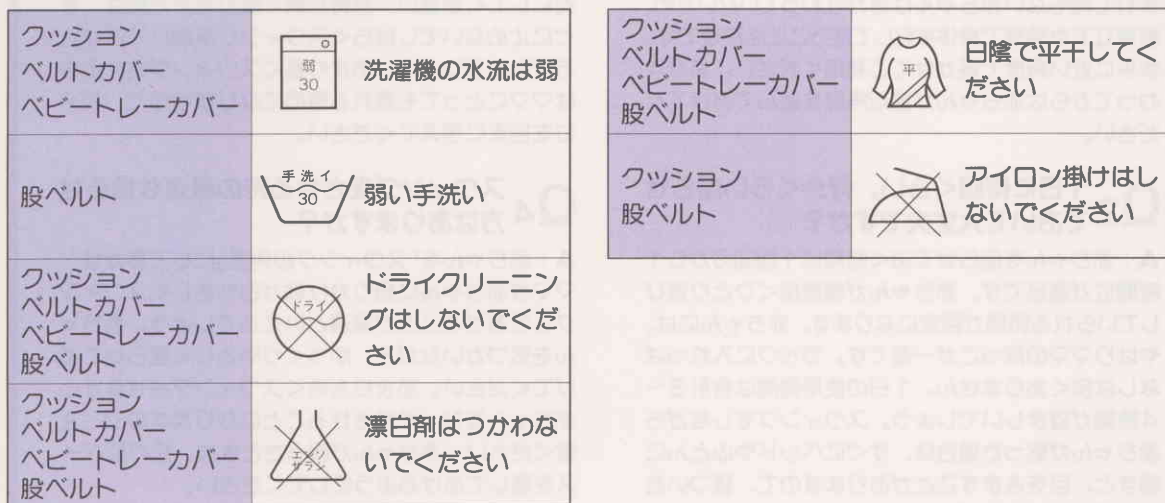 クッション
ベルトカバー
ベビートレーカバー
弱
30
洗濯機の水流は弱
股ベルト
手洗イ
30
弱い手洗い
クッション
ベルトカバー
ベビートレーカバー
股ベルト
ドライ
ドライクリーニン
グはしないでくだ
さい
クッション
ベルトカバー
ベビートレーカバー
股ベルト
エンソ
サラシ
漂白剤はつかわな
いでください
クッション
ベルトカバー
ベビートレーカバー
股ベルト
平
日陰で平干してく
ださい
クッション
股ベルト
アイロン掛けはし
ないでください